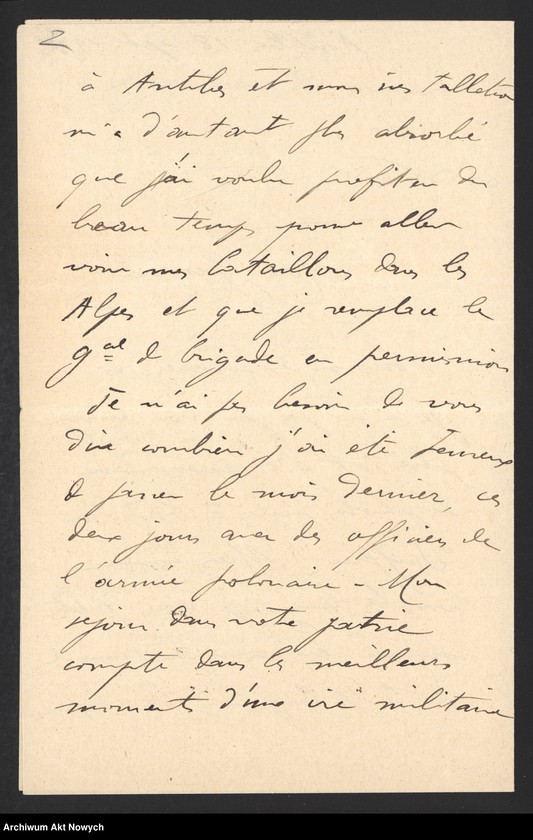 2
à Antibes et mon installation
m'a d'autant plus absorbé
que j'ai voulu profiter du
beau temps pour aller
voir mes bataillons dans les
Alpes et que je remplace le
gal de brigade en permission
Je n'ai pas besoin de vous
dire combien j'ai été heureux
de passer le mois dernier, ces
deux jours avec des officiers de
l'armée polonaise - Mon
séjour dans votre patrie
compte dans les meilleurs
moments d'une vie militaire
Archiwum Akt Nowych